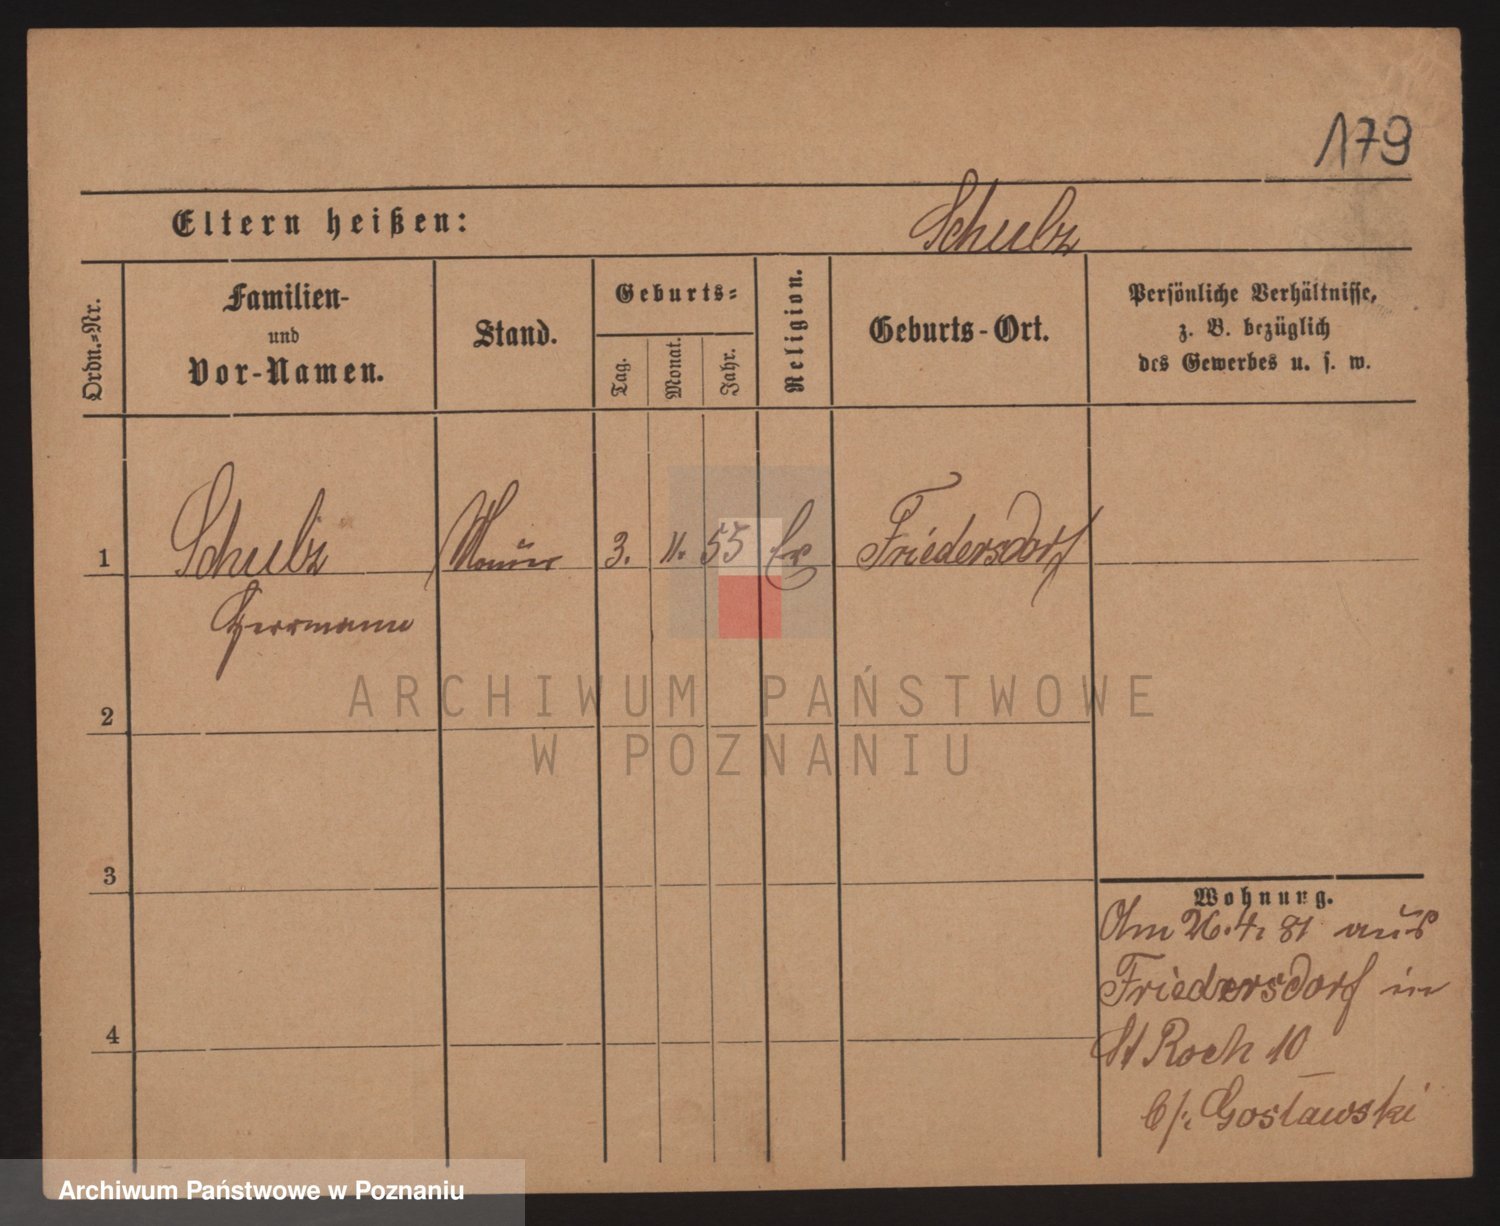 179
Eltern heißen: Schulz
Ordn.-Nr.
Familien-
und
Vor-Namen.
Stand.
Geburts-
Tag.
Monat.
Jahr.
Religion.
Geburts-Ort.
Persönliche Verhältnisse,
z. B. bezüglich
des Gewerbes u. s. w.
1 Schulz Maurer 3. 11. 55 Friedersdorf
Herrmann
2
3
4
Wohnung.
Am 26.4. 81 aus
Friedersdorf in
St Roch 10
b/: Goslawski
ARCHIWUM PAŃSTWOWE
W POZNANIU
Archiwum Państwowe w Poznaniu